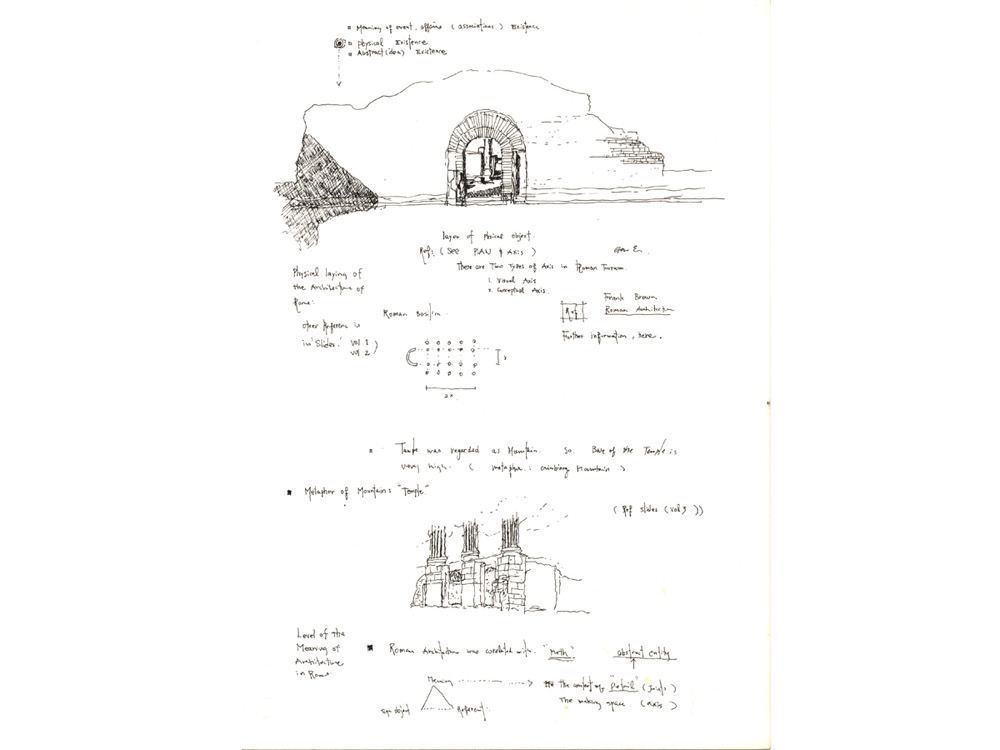 Meaning of event, affairs (associations) Existence
Physical Existence
Abstract (idea) Existence
layer of Phsical object.
Ref: (See PLAN & Axis.)
There are Two Types of Axis in Roman
1. Visual Axis
2. Conceptual Axis.
Physical laying of
the Architecture of
Rome:
other Reference is
in 'Slides.' vol 1
vol 2 )
Roman
Ref
Frank Brown
Roman Architecture
Further information, here.
x
2x
was regarded as Mountain. So. Base of the Temple is
very high. ( metaphor: climbing Mountain )
Metaphor of Mountain: "Temple"
(Ref slides (vol 3))
Level of the
Meaning of
Architecture
in Rome
Roman Architecture was correlated with. "Meth" abstract entity
Meaning
the context of "Detail" (Joints)
The making space (axis)
Sign object Referent